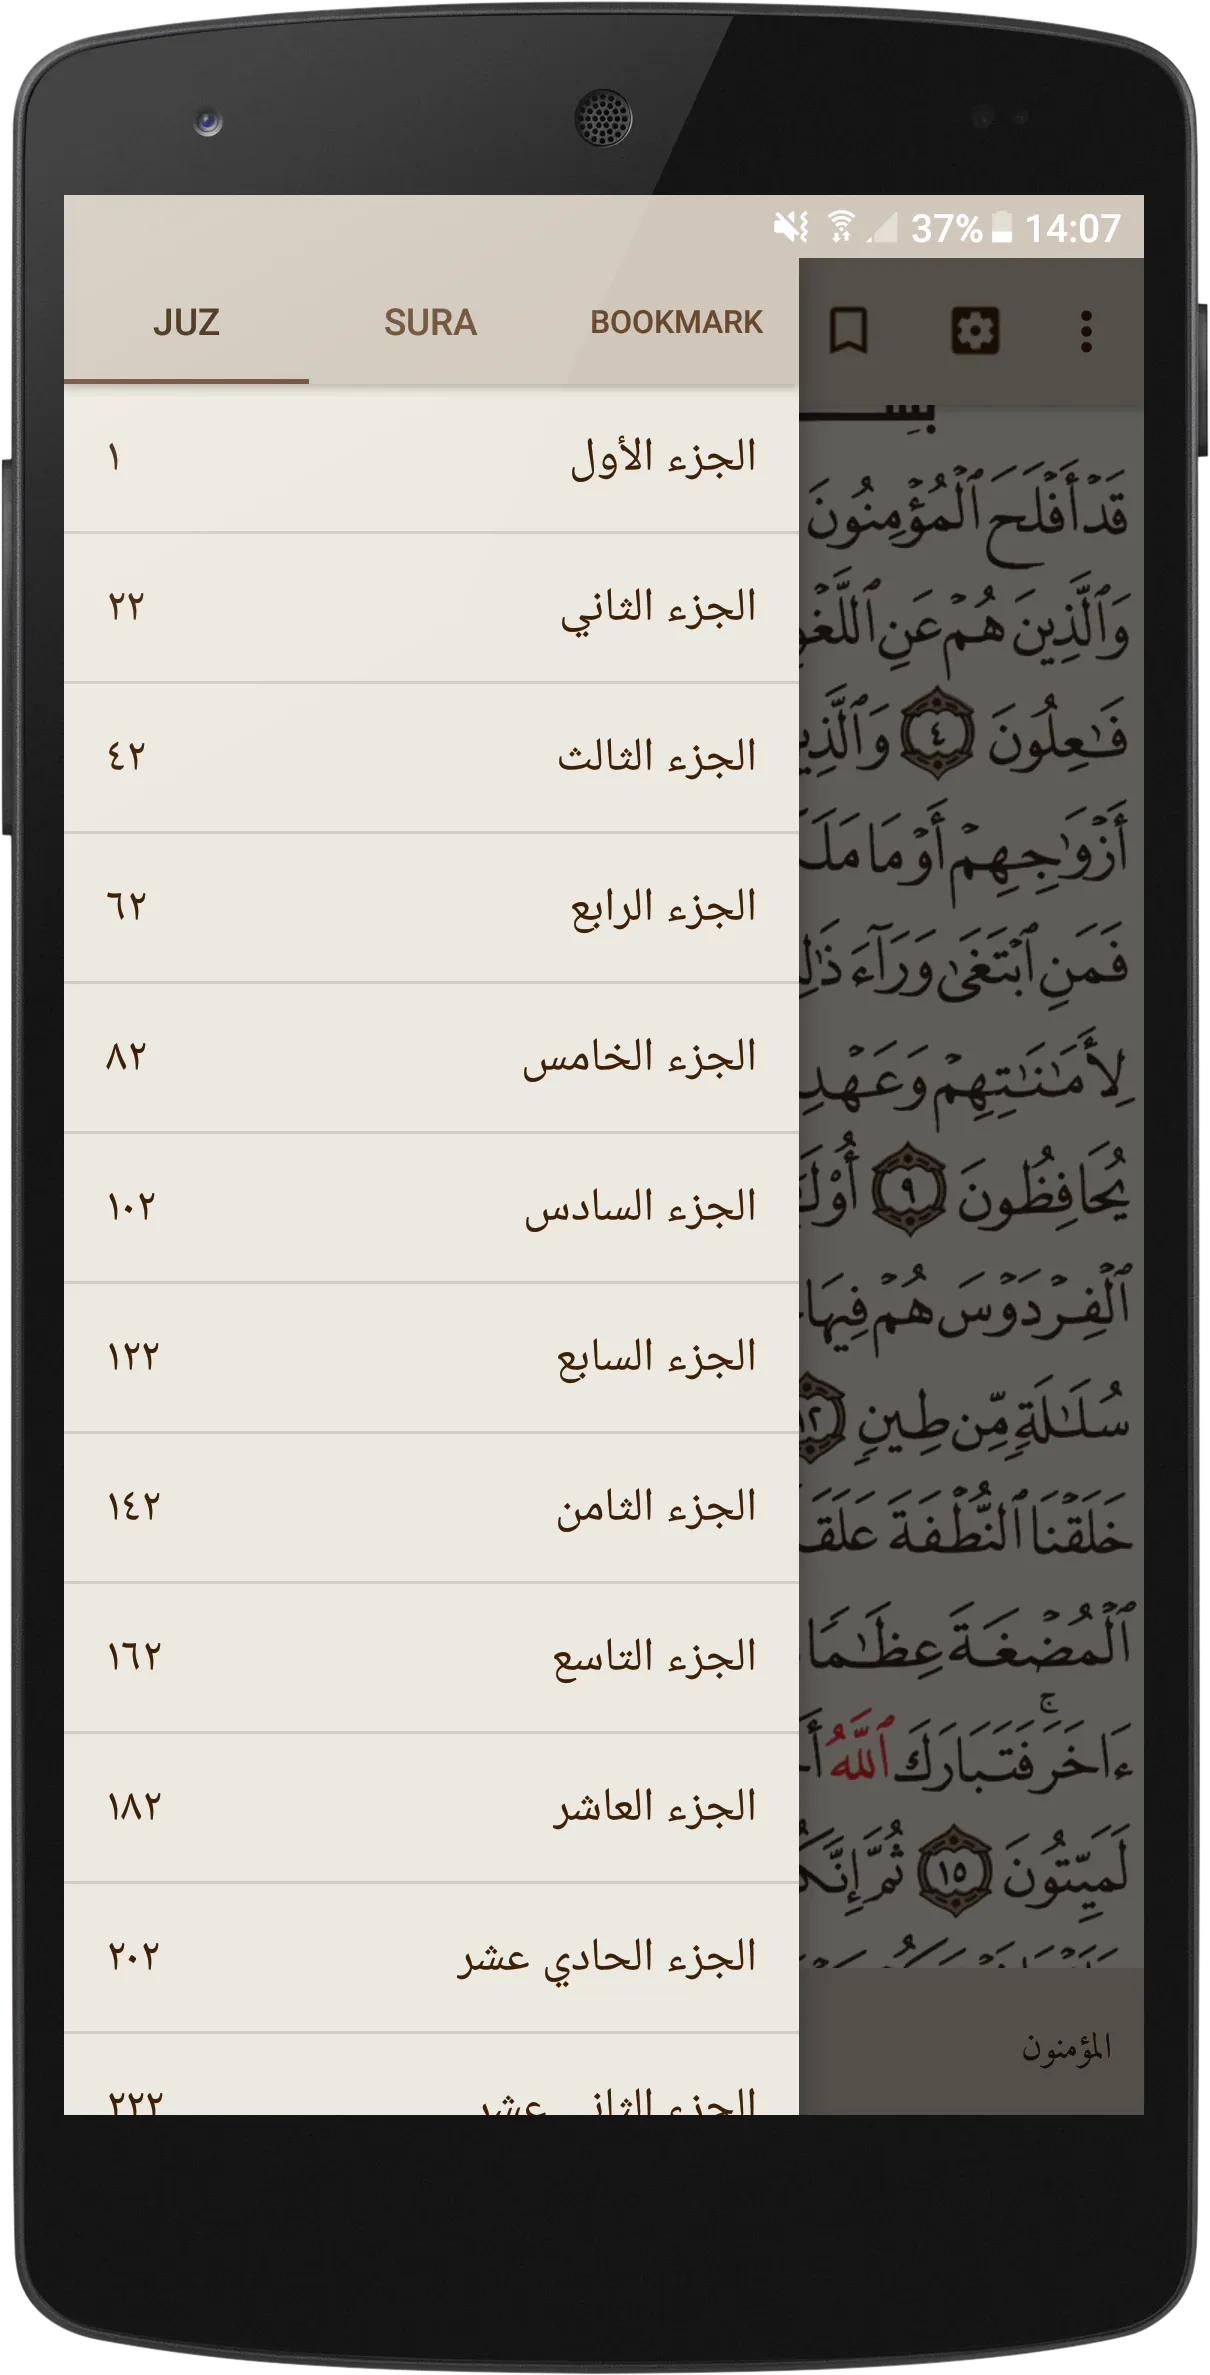 37% 14:07
JUZ SURA BOOKMARK
الجزء الأول ١
الجزء الثاني ٢٢
الجزء الثالث ٤٢
الجزء الرابع ٦٢
الجزء الخامس ٨٢
الجزء السادس ١٠٢
الجزء السابع ١٢٢
الجزء الثامن ١٤٢
الجزء التاسع ١٦٢
الجزء العاشر ١٨٢
الجزء الحادي عشر ٢٠٢
الجزء الثاني عشر ٢٢٢
قَدۡ أَفۡلَحَ ٱلۡمُؤۡمِنُونَ
وَٱلَّذِينَ هُمۡ عَنِ ٱللَّغۡوِ
فَٰعِلُونَ ٤ وَٱلَّذِي
أَزۡوَٰجِهِمۡ أَوۡ مَا مَلَ
فَمَنِ ٱبۡتَغَىٰ وَرَآءَ ذَٰلِ
لِأَمَٰنَٰتِهِمۡ وَعَهۡدِ
يُحَافِظُونَ ٩ أُوْلَ
ٱلۡفِرۡدَوۡسَ هُمۡ فِيهَا
سُلَٰلَةٖ مِّن طِينٖ ١٢
خَلَقۡنَا ٱلنُّطۡفَةَ عَلَقَ
ٱلۡمُضۡغَةَ عِظَٰمٗا
ءَاخَرَۚ فَتَبَارَكَ ٱللَّهُ أَحۡ
لَمَيِّتُونَ ١٥ ثُمَّ إِنَّكُ
المؤمنون